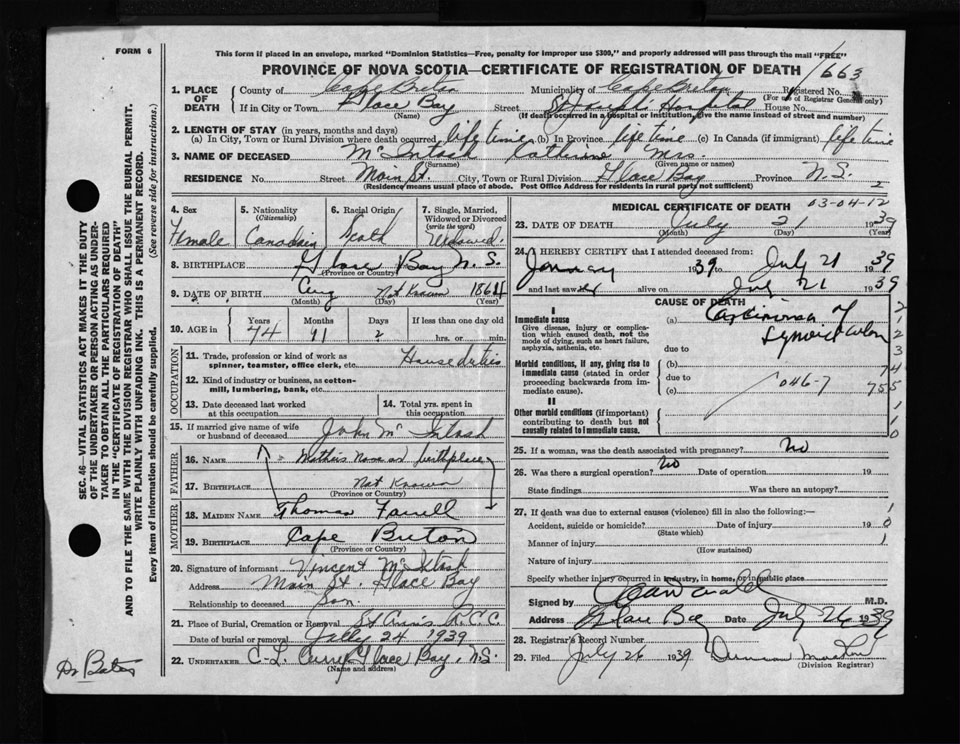 FORM 6
This form if placed in an envelope, marked "Dominion Statistics—Free, penalty for improper use $300," and properly addressed will pass through the mail "FREE"
PROVINCE OF NOVA SCOTIA—CERTIFICATE OF REGISTRATION OF DEATH
1663
1. PLACE OF DEATH
County of Cape Breton Municipality of Cape Breton Registered No.
(For use of Registrar General only)
If in City or Town Glace Bay Street St Joseph Hospital House No.
(Name) (If death occurred in a hospital or institution, give the name instead of street and number)
2. LENGTH OF STAY (in years, months and days)
(a) In City, Town or Rural Division where death occurred life time (b) In Province life time (c) In Canada (if immigrant) life time
3. NAME OF DECEASED McIntosh Katherine Mrs.
(Surname) (Given name or names)
RESIDENCE No. Street Main St. City, Town or Rural Division Glace Bay Province N.S.
(Residence means usual place of abode. Post Office Address for residents in rural parts not sufficient)
2
4. Sex Female
5. Nationality (Citizenship) Canadian
6. Racial Origin Scotch
7. Single, Married, Widowed or Divorced (write the word) Widowed.
8. BIRTHPLACE Glace Bay N.S.
(Province or Country)
9. DATE OF BIRTH Aug Not Known 1864
(Month) (Day) (Year)
10. AGE in Years Months Days If less than one day old
74 11 ? hrs. or min.
OCCUPATION
11. Trade, profession or kind of work as spinner, teamster, office clerk, etc. House duties
12. Kind of industry or business, as cotton-mill, lumbering, bank, etc.
13. Date deceased last worked at this occupation
14. Total yrs. spent in this occupation
15. If married give name of wife or husband of deceased John McIntosh
FATHER
16. NAME Mothers Name or birthplace
17. BIRTHPLACE Not Known
(Province or Country)
MOTHER
18. MAIDEN NAME Thomas Farrell
19. BIRTHPLACE Cape Breton
(Province or Country)
20. Signature of informant Vincent McIntosh
Address Main St. Glace Bay
Relationship to deceased Son
21. Place of Burial, Cremation or Removal St Ann's R.C.C.
Date of burial or removal July 24 1939
22. UNDERTAKER C.L. Curry Glace Bay, N.S.
(Name and address)
MEDICAL CERTIFICATE OF DEATH 03-04-12
23. DATE OF DEATH July 21 1939
(Month) (Day) (Year)
24. I HEREBY CERTIFY that I attended deceased from:
January 1939 to July 21 1939
and last saw her alive on July 21 1939
CAUSE OF DEATH
I
Immediate cause
Give disease, injury or complication which caused death, not the mode of dying, such as heart failure, asphyxia, asthenia, etc.
(a) Carcinoma of Sigmoid Colon
due to
Morbid conditions, if any, giving rise to immediate cause (stated in order proceeding backwards from immediate cause).
(b)
due to
(c)
046-7
II
Other morbid conditions (if important) contributing to death but not causally related to immediate cause.
2
2
3
74
755
1
1
0
25. If a woman, was the death associated with pregnancy? No
26. Was there a surgical operation? No Date of operation 19
State findings Was there an autopsy?
27. If death was due to external causes (violence) fill in also the following:—
Accident, suicide or homicide? Date of injury 19
(State which)
Manner of injury
(How sustained)
Nature of injury
Specify whether injury occurred in industry, in home, or in public place
1
0
1
Signed by M.D.
Address Glace Bay Date July 26 1939
28. Registrar's Record Number
29. Filed July 26 1939 Duncan
(Division Registrar)
SEC. 46—VITAL STATISTICS ACT MAKES IT THE DUTY
OF THE UNDERTAKER OR PERSON ACTING AS UNDER-
TAKER TO OBTAIN ALL THE PARTICULARS REQUIRED
IN THE "CERTIFICATE OF REGISTRATION OF DEATH"
AND TO FILE THE SAME WITH THE DIVISION REGISTRAR WHO SHALL ISSUE THE BURIAL PERMIT.
WRITE PLAINLY WITH UNFADING INK. THIS IS A PERMANENT RECORD.
Every item of information should be carefully supplied. (See reverse side for instructions.)
Dr